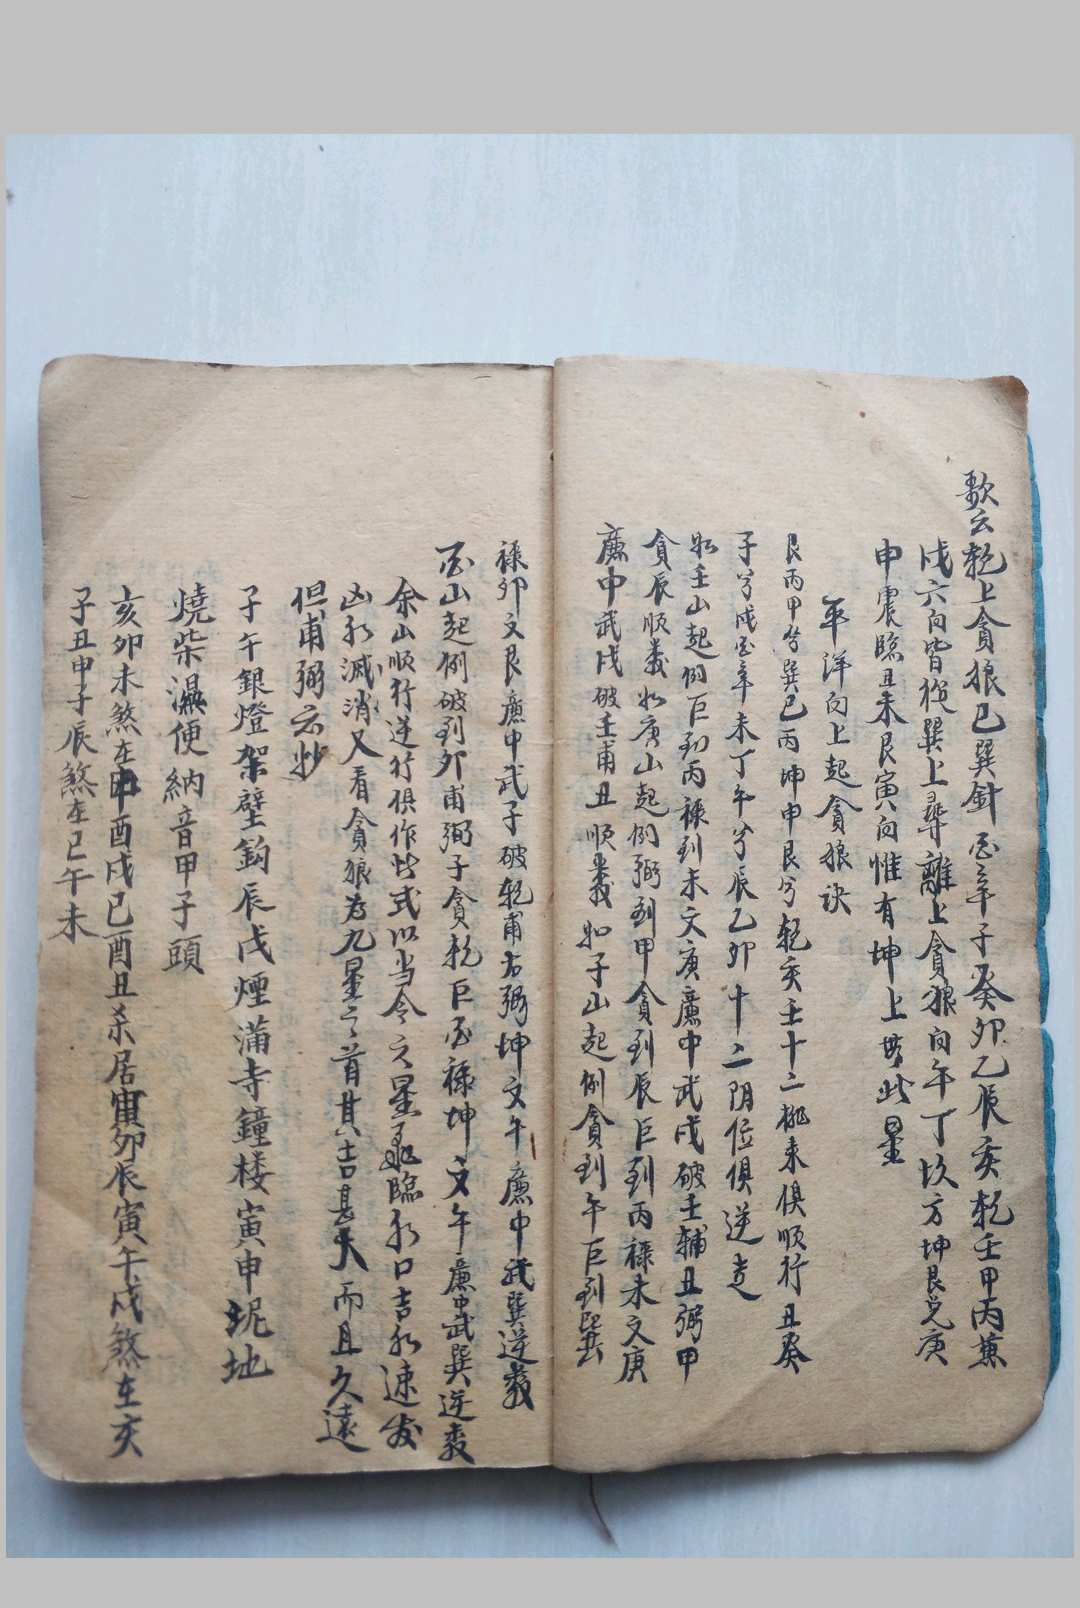 歌云乾上貪狼巳巽針酉辛子癸卯乙辰亥乾壬甲丙兼
戌六向皆從巽上尋離上貪狼向午丁坎方坤艮兌庚
申震臨丑未艮寅向惟有坤上無此星
平洋向上起貪狼訣
艮丙甲兮巽巳丙坤申艮兮乾亥壬十二挑来俱順行丑癸
子兮戌酉辛未丁午兮辰乙卯十二阴位俱逆走
如壬山起例巨到丙禄到未文庚廉中武戌破壬輔丑弼甲
貪辰順裁如庚山起例弼到甲貪到辰巨到丙禄未文庚
廉中武戌破壬甫丑順裁如子山起例貪到午巨到巽
禄卯文艮廉中武子破乾甫右弼坤文午廉中武巽逆裁
酉山起例破到卯甫弼子貪乾巨酉禄坤文午廉中武巽逆裁
余山順行逆行俱作此式以当令之星飛臨水口吉水速发
凶水滅消又看貪狼为九星之首其吉甚大而且久遠
但甫弼云妙
子午銀燈架壁鈎辰戌煙滿寺鐘楼寅申坭地
燒柴濕便納音甲子頭
亥卯未煞在申酉戌巳酉丑杀居寅卯辰寅午戌煞在亥
子丑申子辰煞在巳午未